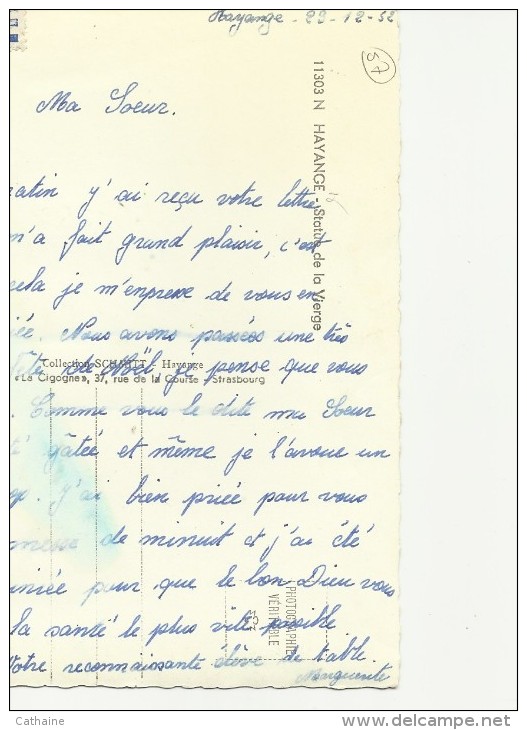 Hayange - 29-12-52
57
11303 N HAYANGE - Statue de la Vierge
Ma Soeur.
matin y'ai reçu votre lettre
m'a fait grand plaisir, c'est
cela je m'enpresse de vous en
Nous avons passées une très
fête de Noël je pense que vous
Collection SCHMITT - Hayange
"La Cigogne", 37, rue de la Course - Strasbourg
Comme vous le dite ma Soeur
gâtée et même je l'avoue un
J'ai bien priée pour vous
messe de minuit et j'ai été
pour que le bon Dieu vous
la santé le plus vite possible
PHOTOGRAPHIE
VÉRITABLE
Votre reconnaissante élève de table.
Marguerite
Cathaine
www.delcampe.net